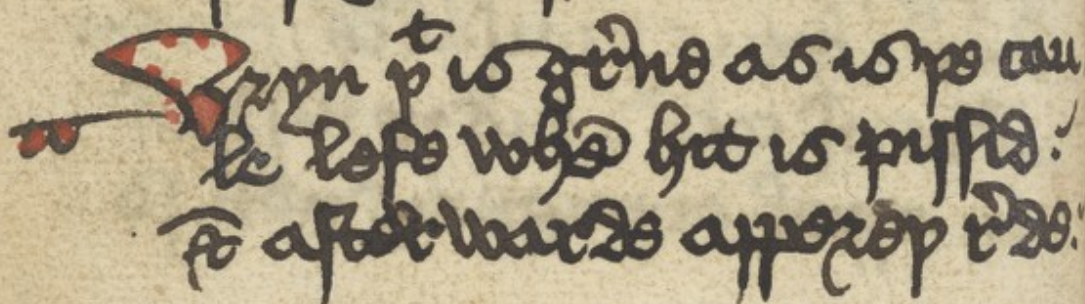 Uryn þͭ is grͥne as is þe cau
le lefe whē hit is pissid.
& afterwarde appereþ rͥde.